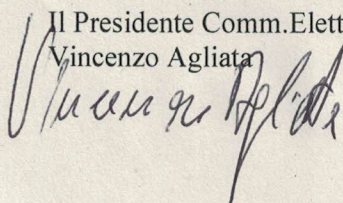 Il Presidente Comm.Elett
Vincenzo Agliata
Vincenzo Agliata